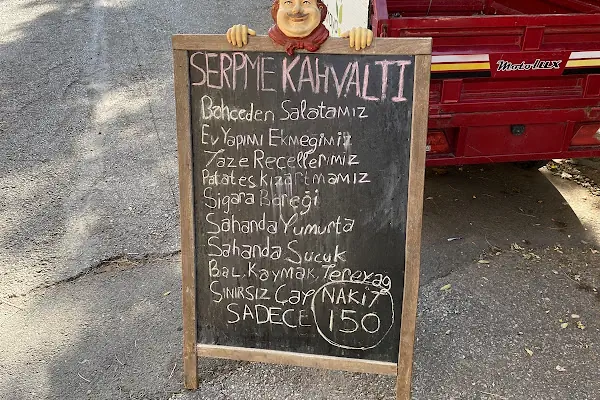 SERPME KAHVALTI
Bahçeden Salatamız
Ev Yapımı Ekmeğimiz
Taze Reçellerimiz
Patates Kızartmamız
Sigara Böreği
Sahanda Yumurta
Sahanda Sucuk
Bal, Kaymak, Tereyağ
Sınırsız Çay
SADECE
NAKİT
150
MotoLUX